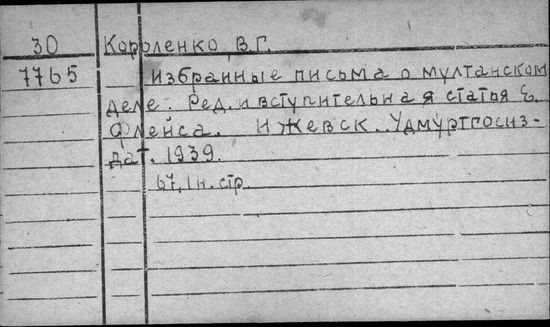 30 Короленко, В.Г.
7765 Избранные письма о мултанском
деле. Ред. и вступительная статья Е.
Флейса. Ижевск. Удмуртгосиз-
дат. 1939.
67, 1 н. стр.